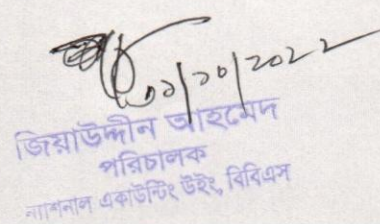 ০২/১০/2022
জিয়াউদ্দীন আহমেদ
পরিচালক
ন্যাশনাল একাউন্টিং উইং, বিবিএস